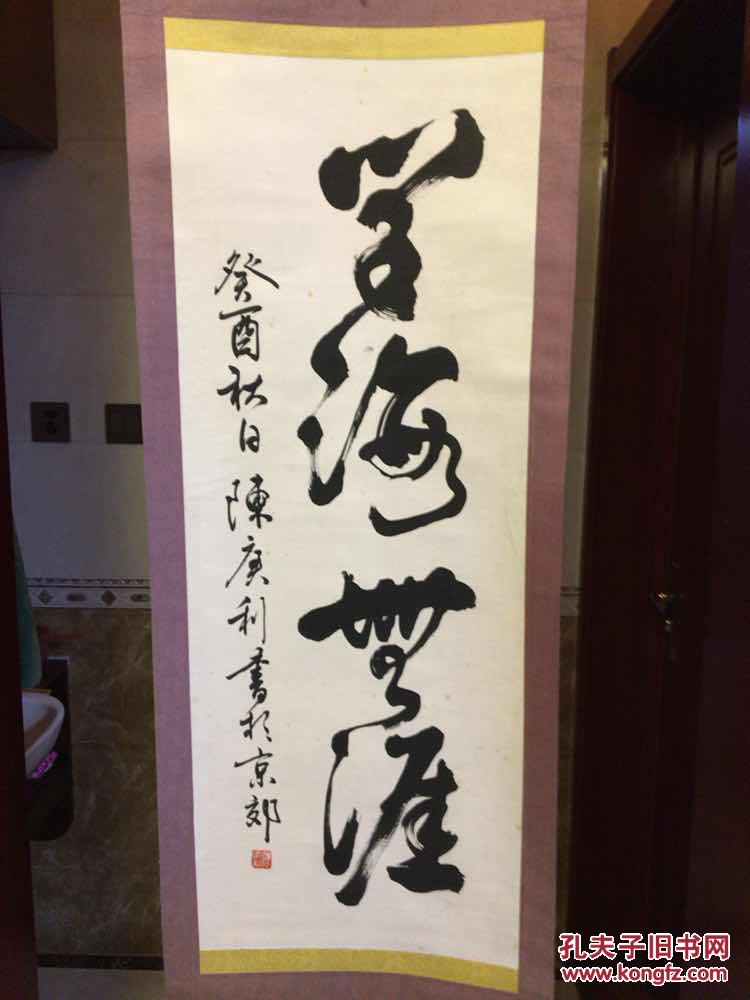 学海無涯
癸酉秋日 陳廣利書於京郊
孔夫子旧书网
www.kongfz.com